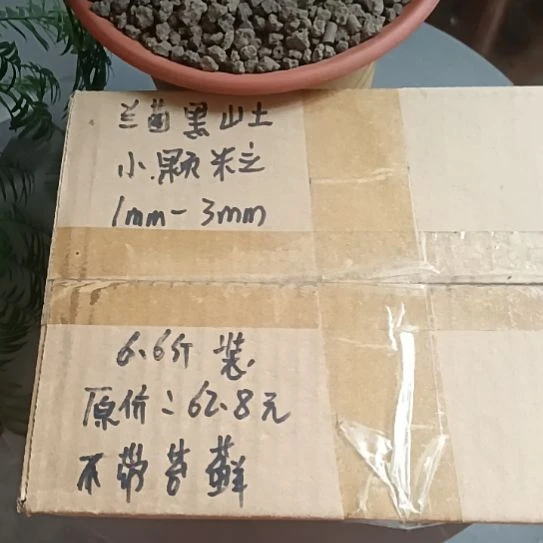 兰菌黑山土
小颗粒
1mm-3mm
6.6斤装
原价:62.8元
不带苔藓